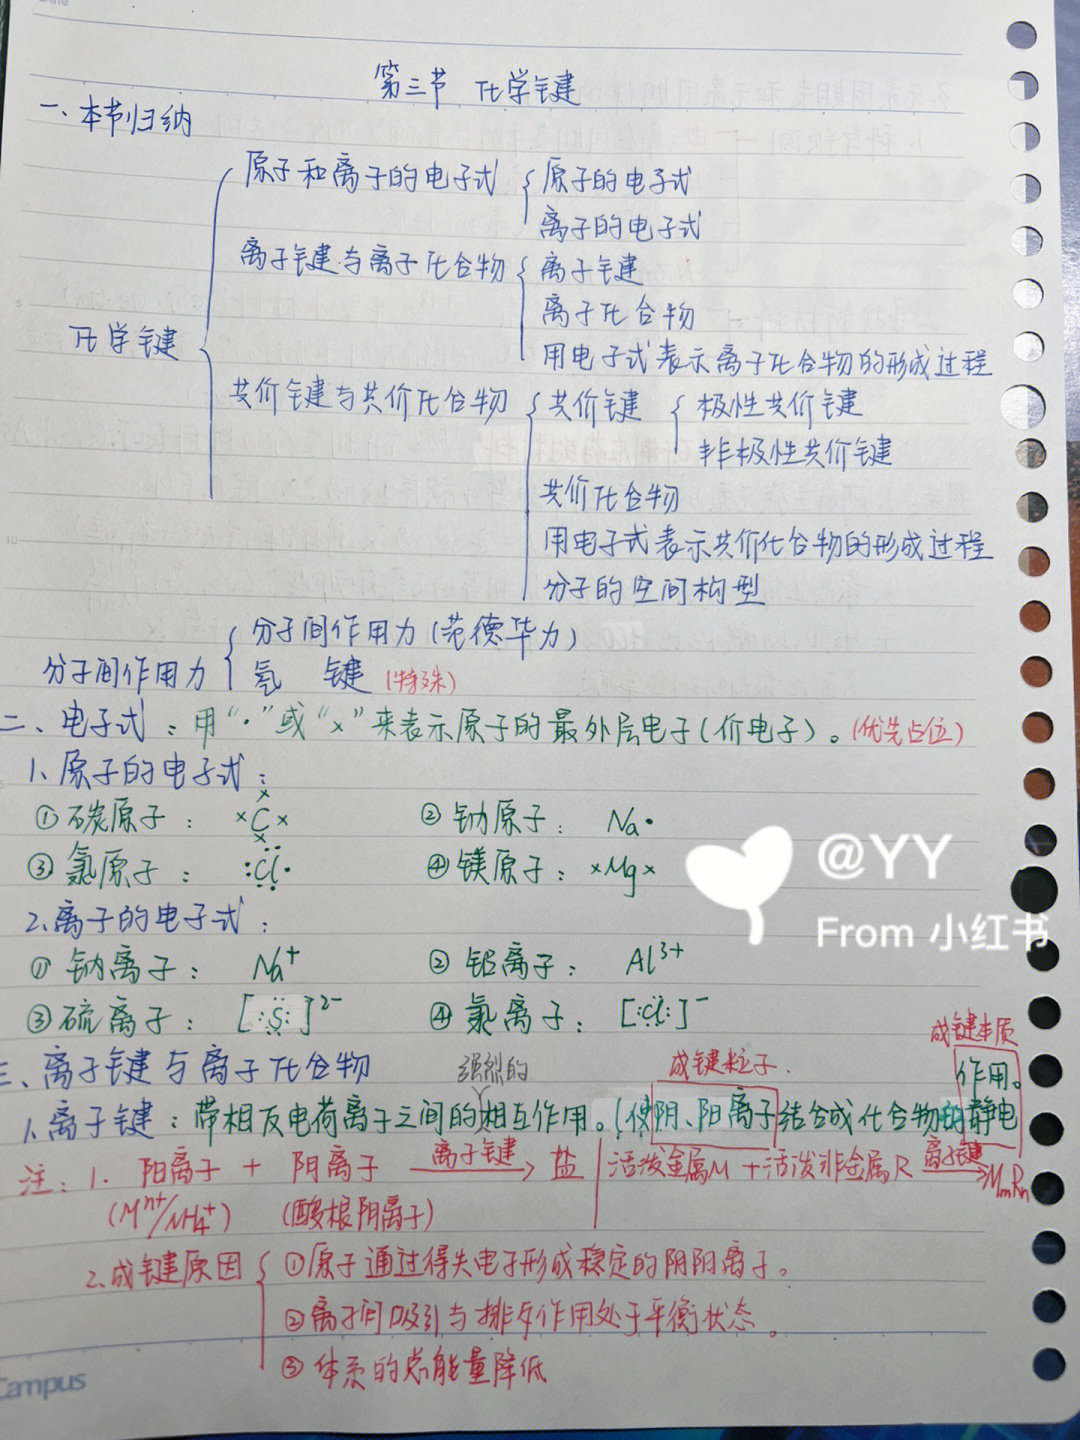 Date
第三节 化学键
一、本节归纳
原子和离子的电子式 { 原子的电子式
离子的电子式
离子键与离子化合物 { 离子键
离子化合物
化学键 {
用电子式表示离子化合物的形成过程
共价键与共价化合物 { 共价键 { 极性共价键
非极性共价键
共价化合物
用电子式表示共价化合物的形成过程
分子的空间构型
分子间作用力 { 分子间作用力(范德华力)
氢 键 (特殊)
二、电子式：用“·”或“×”来表示原子的最外层电子(价电子)。(优先占位)
1、原子的电子式：
①碳原子： ×C×
②钠原子： Na·
③氯原子： :Cl·
④镁原子：×Mg×
2.离子的电子式：
①钠离子： Na⁺
②铝离子： Al³⁺
③硫离子： [:S:]²⁻
④氯离子： [:Cl:]⁻
三、离子键与离子化合物
强烈的
成键粒子.
成键本质
作用。
1.离子键：带相反电荷离子之间的相互作用。(使阴、阳离子结合成化合物的静电
注：1. 阳离子 + 阴离子 离子键→ 盐 | 活泼金属M + 活泼非金属R 离子键→ MmRn
(Mⁿ⁺/NH₄⁺) (酸根阴离子)
2.成键原因 { ①原子通过得失电子形成稳定的阴阳离子。
②离子间吸引与排斥作用处于平衡状态。
③体系的总能量降低
Campus
@YY
From 小红书
5
10